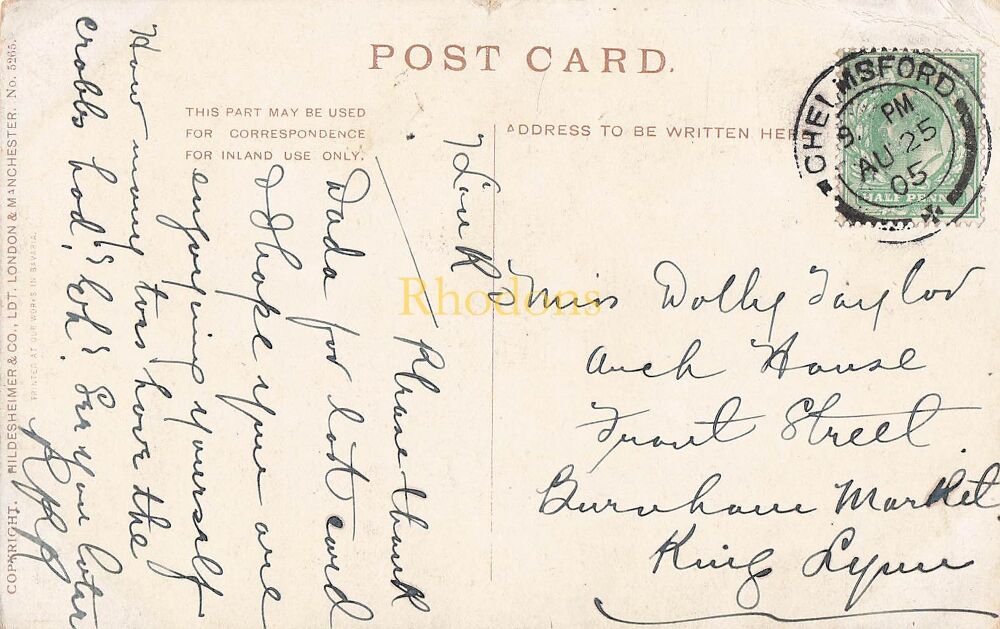 POST CARD.
THIS PART MAY BE USED
FOR CORRESPONDENCE
FOR INLAND USE ONLY.
ADDRESS TO BE WRITTEN HERE
CHELMSFORD
9. PM
AU 25
05
HALF PENNY
Miss Dolly Taylor
Arch House
Front Street
Burnham Market
King Lynn
Please thank
Dada for last card
I Hope you are
enjoying yourself
How many toss have the
crabbs had, "Eh". See you later
Rhodons
COPYRIGHT. HILDESHEIMER & CO., LDT. LONDON & MANCHESTER. No. 5265.
PRINTED AT OUR WORKS IN BAVARIA.